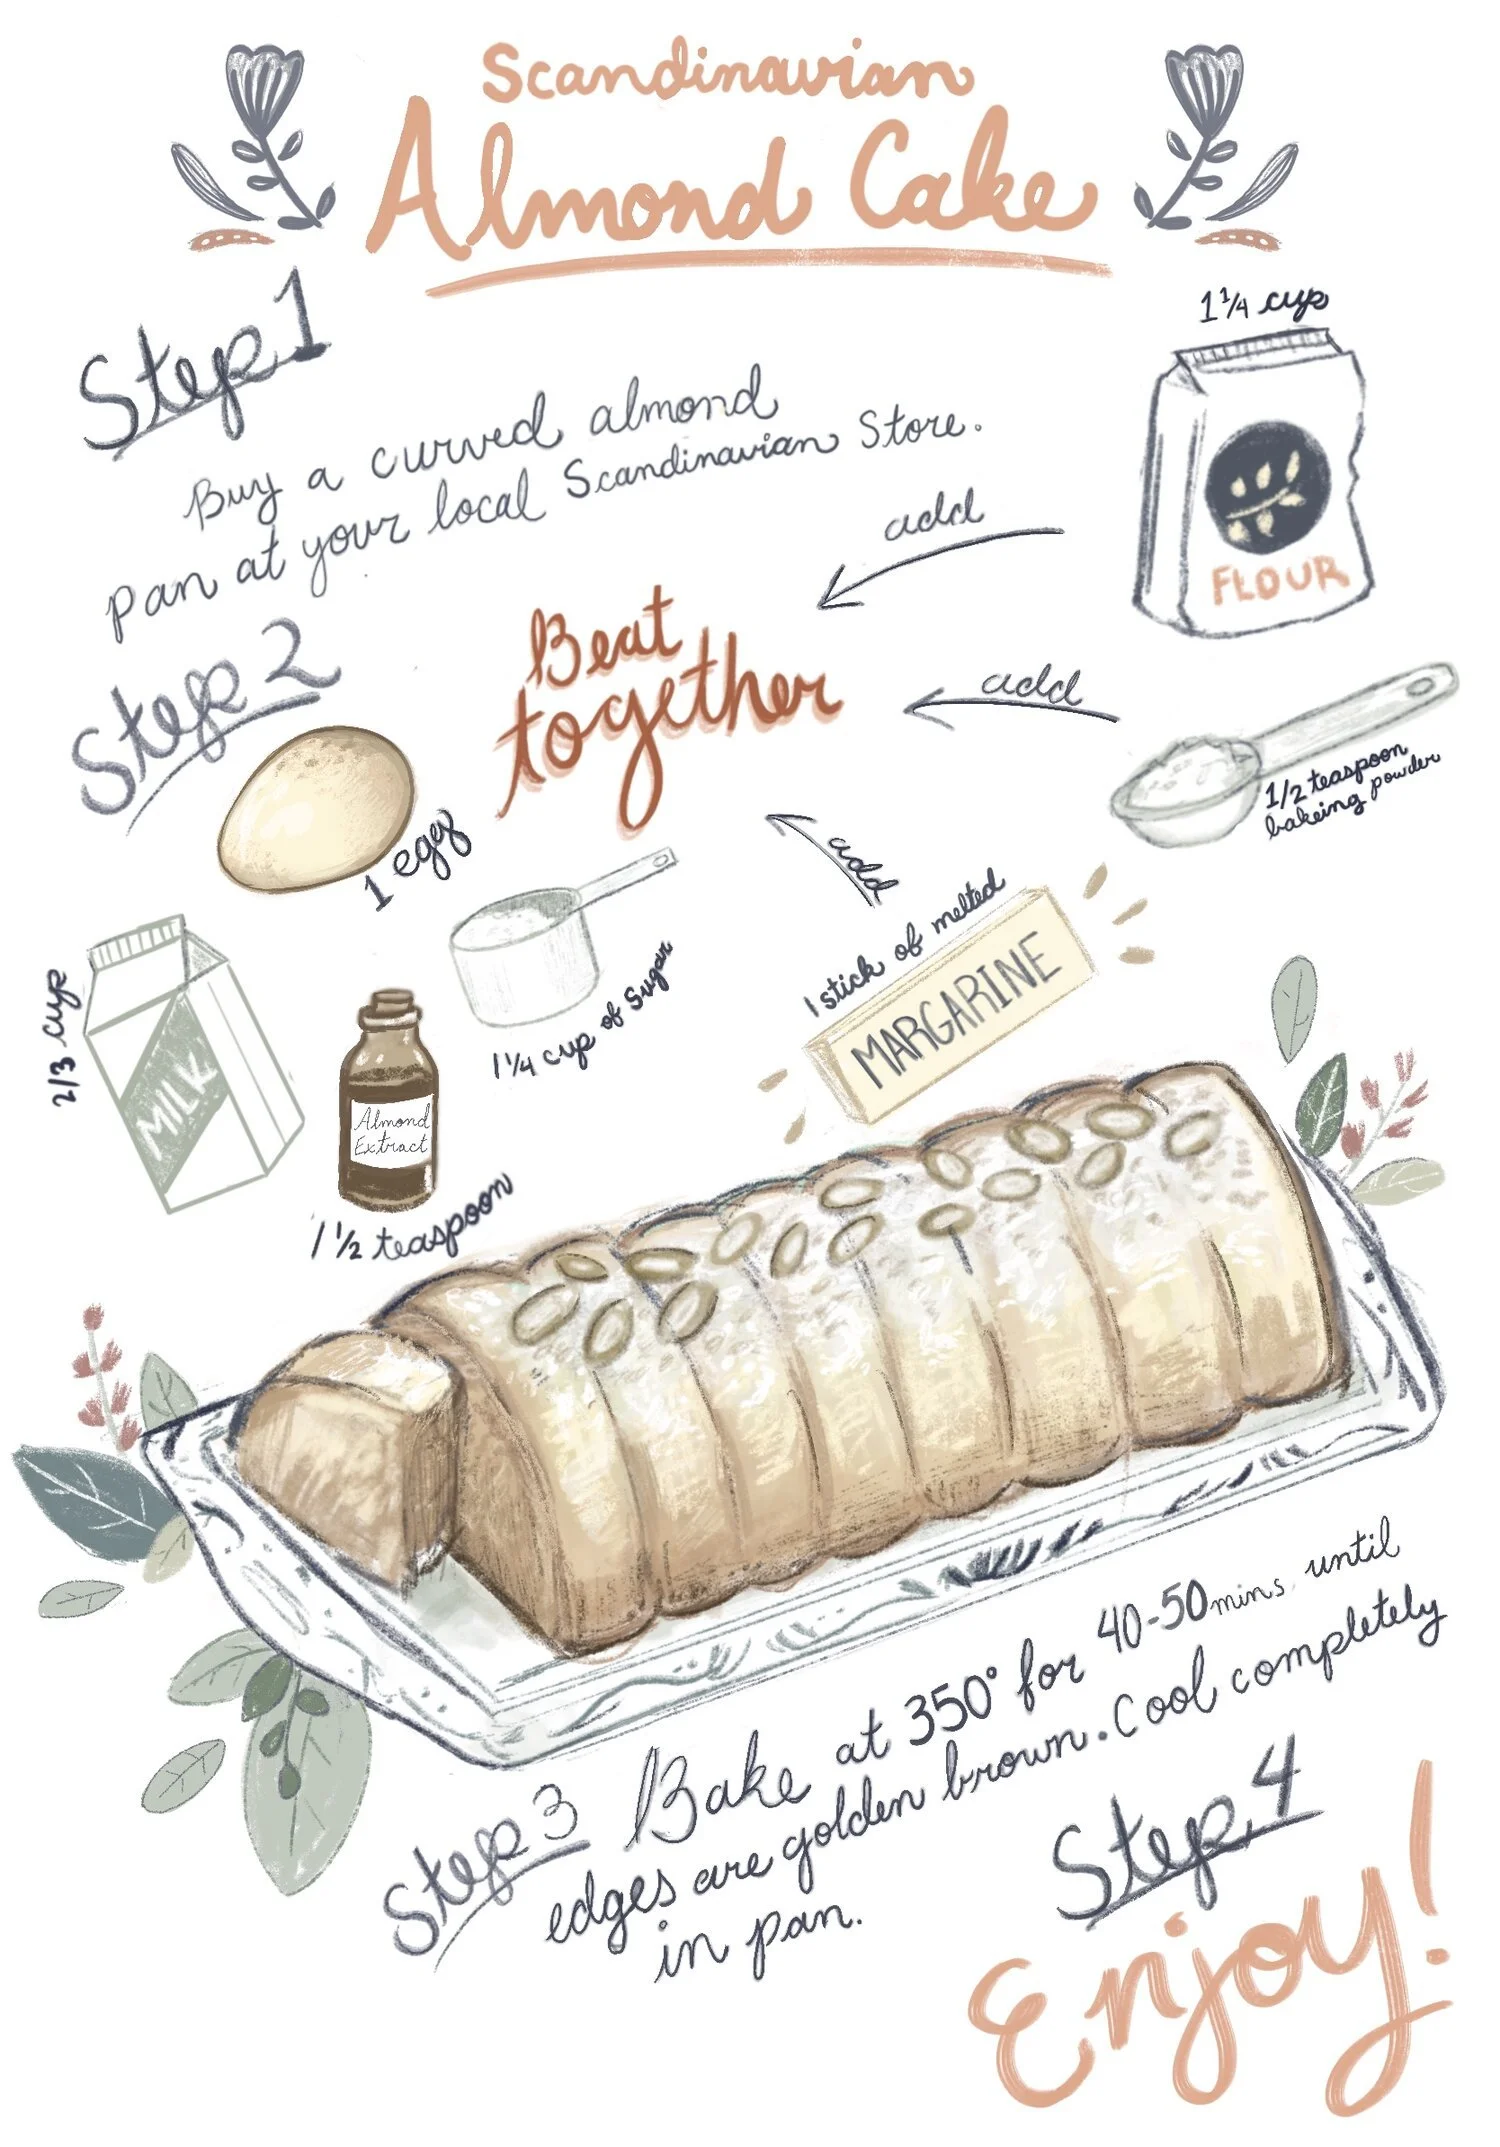 Scandinavian
Almond Cake
Step 1
Buy a curved almond
pan at your local Scandinavian Store.
1 1/4 cup
FLOUR
add
Step 2
Beat
together
add
1/2 teaspoon
bakeing powder
1 egg
add
1 stick of melted
MARGARINE
2/3 cup
MILK
1 1/4 cup of Sugar
Almond
Extract
1 1/2 teaspoon
Step 3 Bake at 350° for 40-50 mins until
edges are golden brown. Cool completely
in pan.
Step 4
Enjoy!